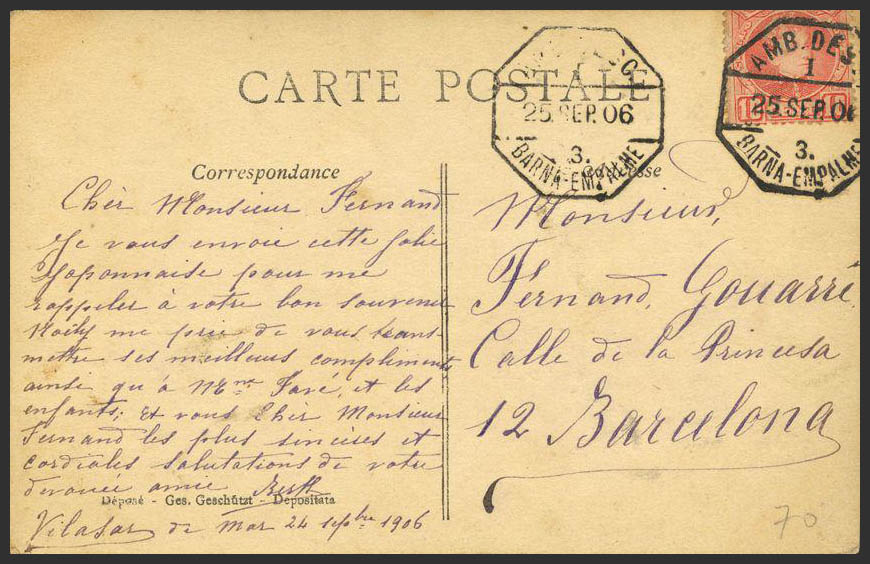 CARTE POSTALE
25 SEP. 06
3.
BARNA-EMPALME
AMB. DES.
1
25 SEP. 06
3.
BARNA-EMPALME
Correspondance
Chèr Monsieur Fernand
Je vous envoie cette jolie
Japonnaise pour me
rappeler à votre bon souvenir
me prie de vous trans-
mettre ses meilleurs compliments
ainsi qu'à Mme Favé, et les
enfants; Et vous Cher Monsieur
Fernand les plus sincères et
cordiales salutations de votre
devouée amie Berth
Déposé - Ges. Geschützt - Depositata
Vilasar de Mar 24 septbre 1906
Monsieur,
Fernand, Gouarré,
Calle de la Princesa
12 Barcelona
70